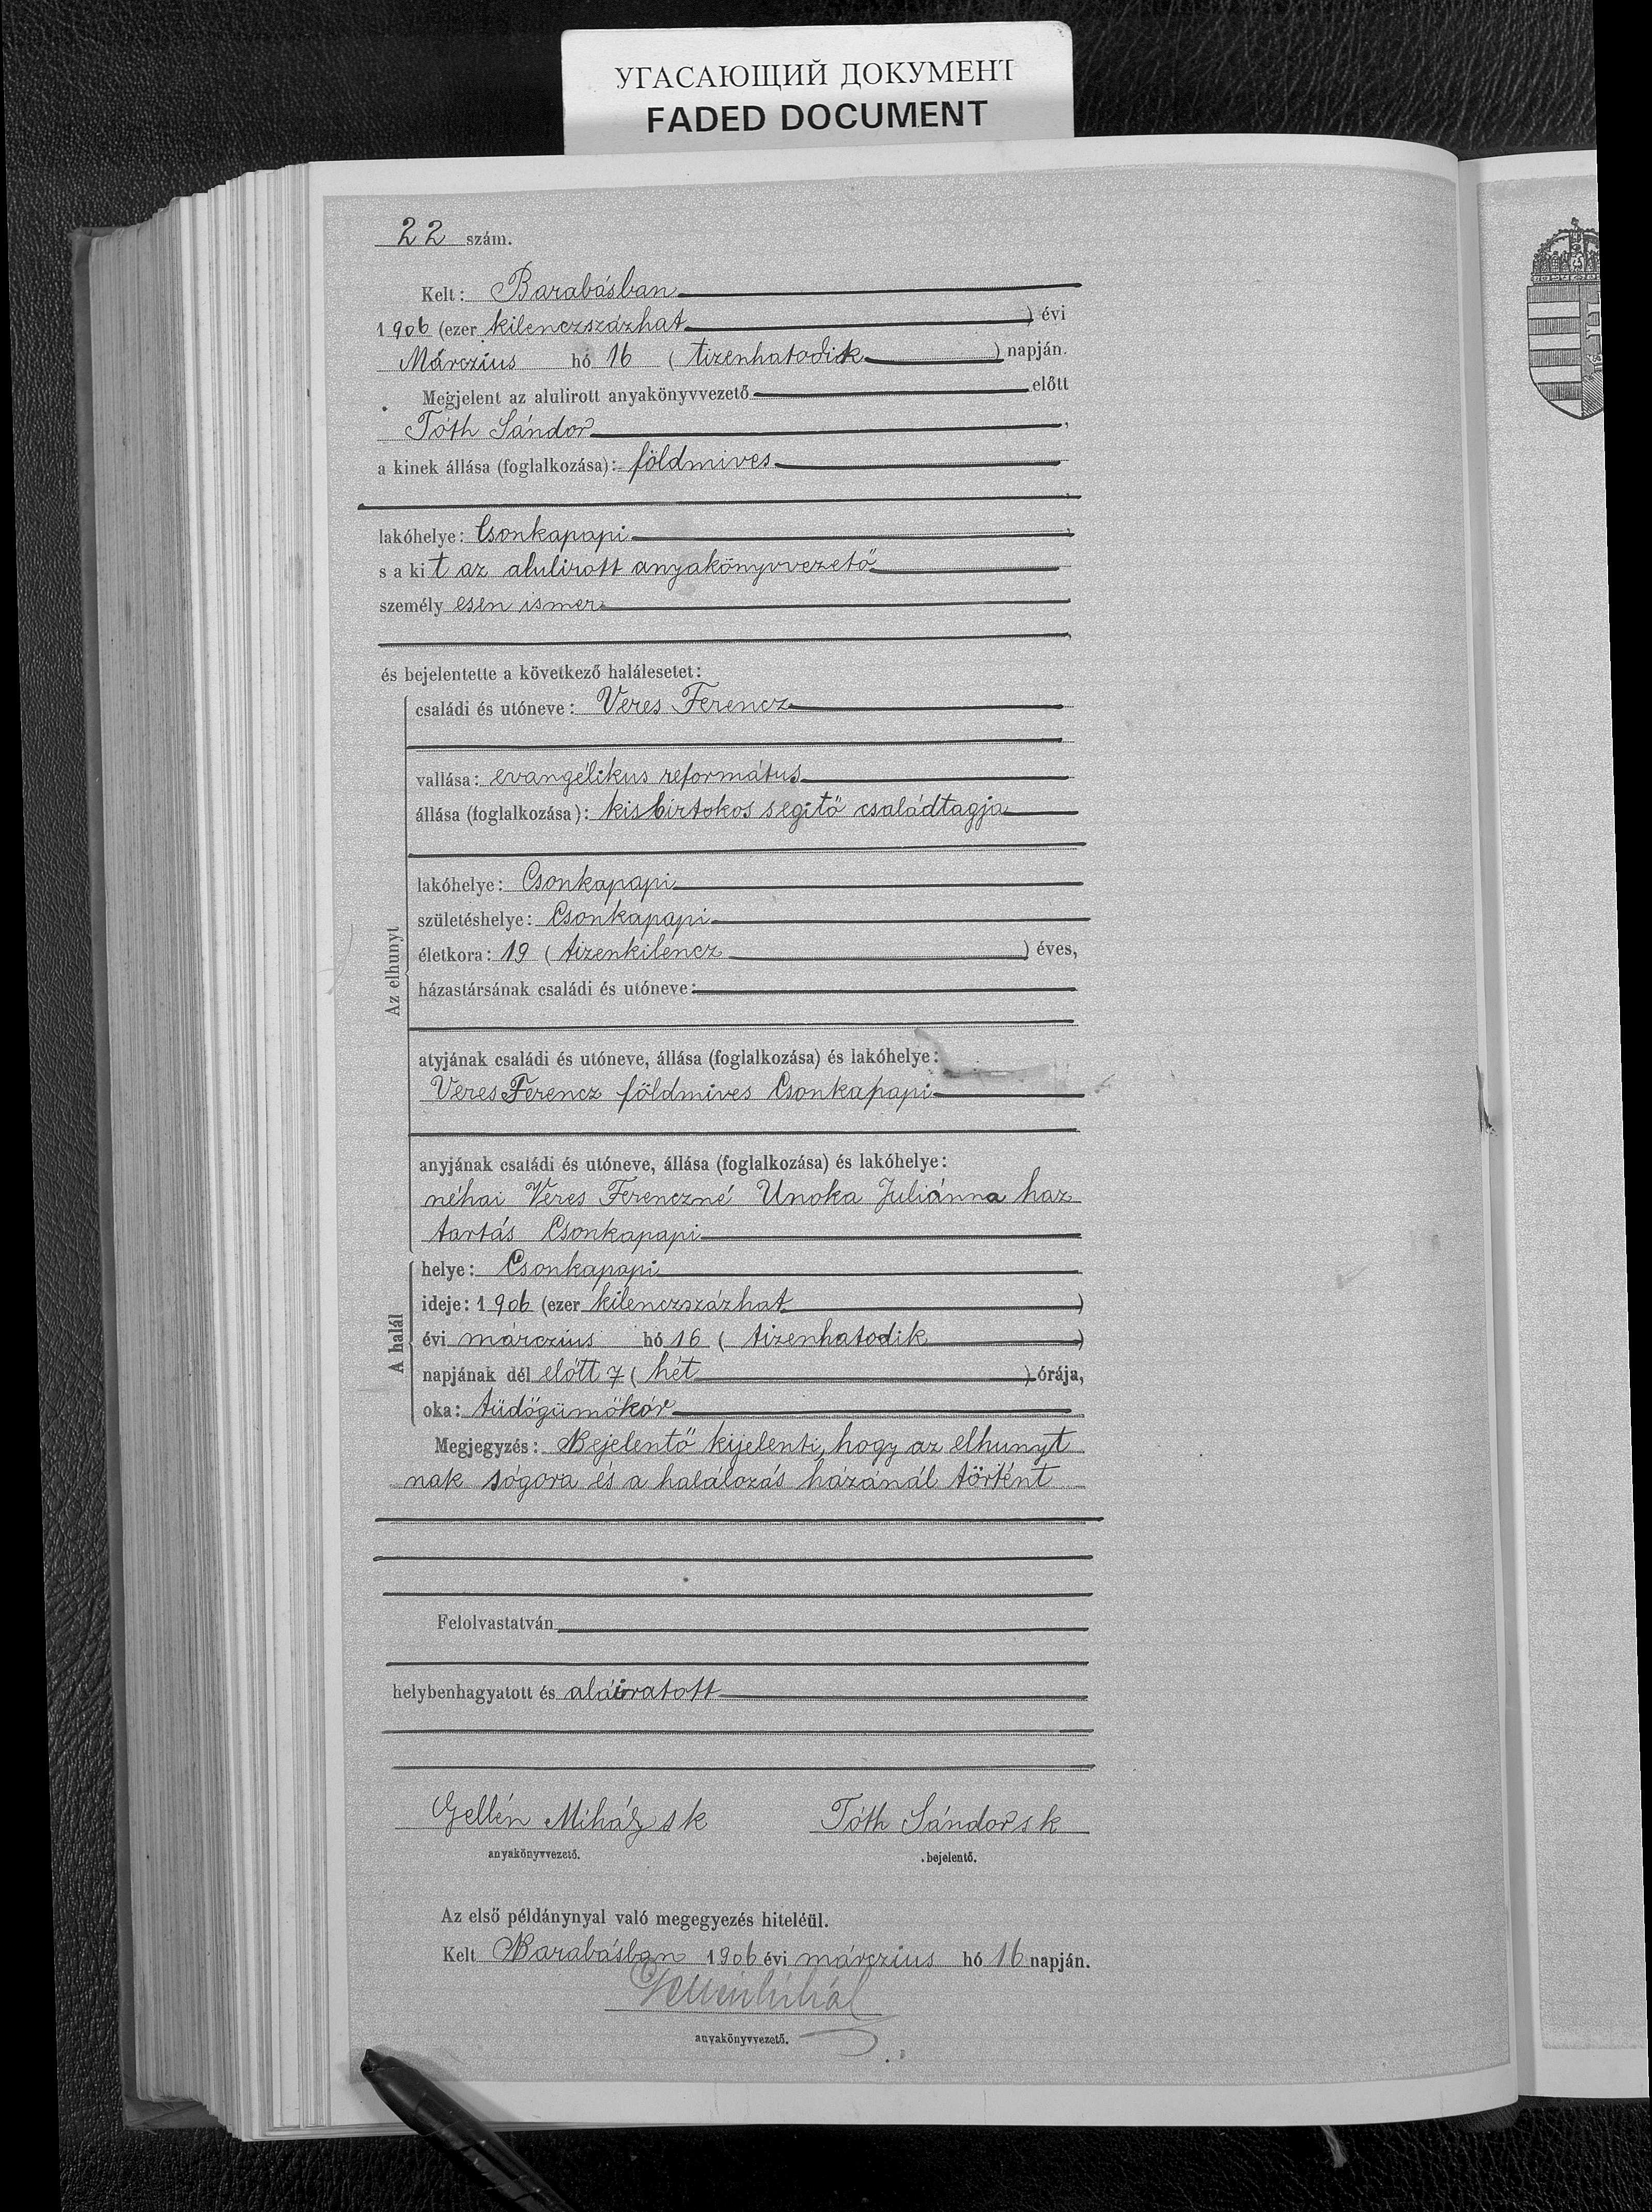 УГАСАЮЩИЙ ДОКУМЕНТ
FADED DOCUMENT
22 szám.
Kelt: Barabásban
1906 (ezer kilenczszázhat) évi
Márczius hó 16 (tizenhatodik) napján.
Megjelent az alulirott anyakönyvvezető előtt
Tóth Sándor,
a kinek állása (foglalkozása): földmives
lakóhelye: Csonkapapi,
s a kit az alulirott anyakönyvvezető
személyesen ismer
és bejelentette a következő halálesetet:
Az elhunyt
családi és utóneve: Veres Ferencz
vallása: evangélikus református
állása (foglalkozása): kisbirtokos segitő családtagja
lakóhelye: Csonkapapi
születéshelye: Csonkapapi
életkora: 19 (tizenkilencz) éves,
házastársának családi és utóneve:
atyjának családi és utóneve, állása (foglalkozása) és lakóhelye:
Veres Ferencz földmives Csonkapapi
anyjának családi és utóneve, állása (foglalkozása) és lakóhelye:
néhai Veres Ferenczné Unoka Juliánna haz
tartás Csonkapapi
A halál
helye: Csonkapapi
ideje: 1906 (ezer kilenczszázhat)
évi márczius hó 16 (tizenhatodik)
napjának dél előtt 7 (hét) órája,
oka: tüdőgümőkór
Megjegyzés: Bejelentő kijelenti, hogy az elhunyt
nak sógora és a halálozás házánál történt
Felolvastatván
helybenhagyatott és aláiratott
Gellén Mihály sk Tóth Sándor sk
anyakönyvvezető. bejelentő.
Az első példánynyal való megegyezés hiteléül.
Kelt Barabásban 1906 évi márczius hó 16 napján.
Gellén Mihály
anyakönyvvezető.